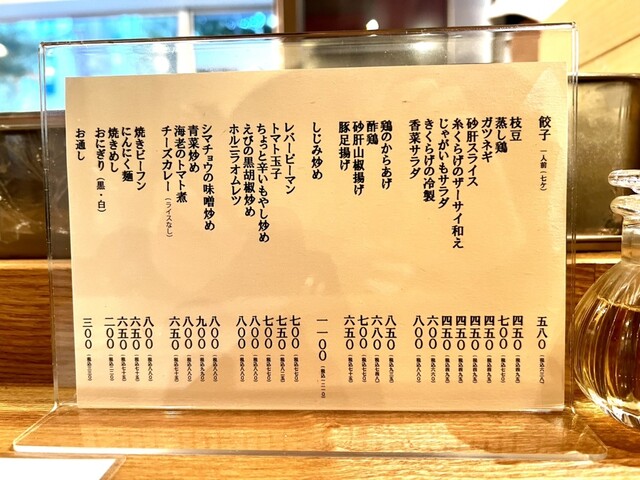 餃子 一人前(七ケ) 五八〇(税込六三八)
枝豆 四五〇(税込四九五)
蒸し鶏 七〇〇(税込七七〇)
ガツネギ 四五〇(税込四九五)
砂肝スライス 四五〇(税込四九五)
糸くらげのザーサイ和え 四五〇(税込四九五)
じゃがいもサラダ 四五〇(税込四九五)
きくらげの冷製 六〇〇(税込六六〇)
香菜サラダ 八〇〇(税込八八〇)
鶏のからあげ 八五〇(税込九三五)
酢鶏 六八〇(税込七四八)
砂肝山椒揚げ 七〇〇(税込七七〇)
豚足揚げ 六五〇(税込七一五)
しじみ炒め 一一〇〇(税込一二一〇)
レバーピーマン 七〇〇(税込七七〇)
トマト玉子 七五〇(税込八二五)
ちょっと辛いもやし炒め 七〇〇(税込七七〇)
えびの黒胡椒炒め 八〇〇(税込八八〇)
ホルニラオムレツ 八〇〇(税込八八〇)
シマチョウの味噌炒め 八〇〇(税込八八〇)
青菜炒め 九〇〇(税込九九〇)
海老のトマト煮 八〇〇(税込八八〇)
チーズカレー(ライスなし) 六五〇(税込七一五)
焼きビーフン 八〇〇(税込八八〇)
にんにく麺 六五〇(税込七一五)
焼きめし 六五〇(税込七一五)
おにぎり(黒・白) 二〇〇(税込二二〇)
お通し 三〇〇(税込三三〇)